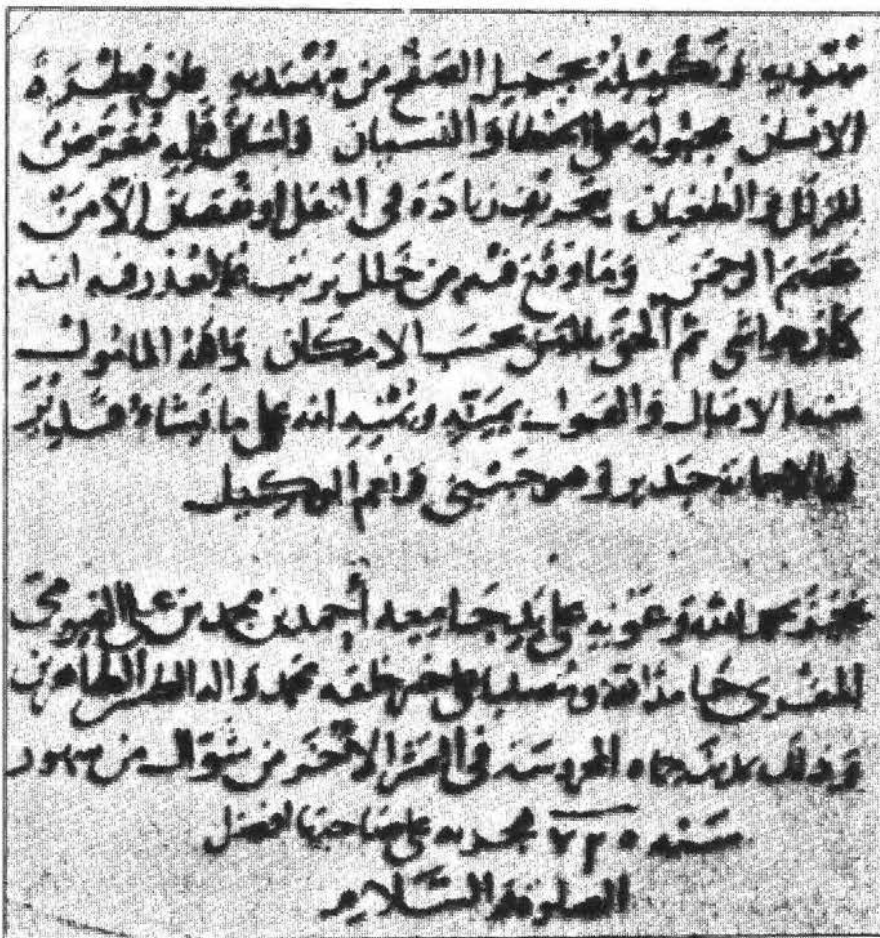 منتهيه وتكميله بجميل الصفح من مبتديه فان فطرة
الانسان مجبولة على الخطا والنسيان ولسان قلمه معرض
للزلل والطغيان بتحريف زيادة في النقل او نقصان الا من
عصم الرحمن وما وقع فيه من خلل ترتيب فالعذر فيه انه
كان حواشي ثم الحق بالمتن بحسب الامكان والله المامول
الاقبال والقبول بمنه انه على ما يشاء قدير
وبالاجابة جدير وهو حسبي ونعم الوكيل
نجز بحمد الله وعونه على يد جامعه أحمد بن محمد بن علي الفيومي
المقري حامدا لله ومصليا على خير خلقه محمد واله الطاهرين
وذلك بمدينة حماه المحروسة في العشر الاخر من شوال من شهور
سنه ٧٢٠ هجريه على صاحبها افضل
الصلوة والسلام